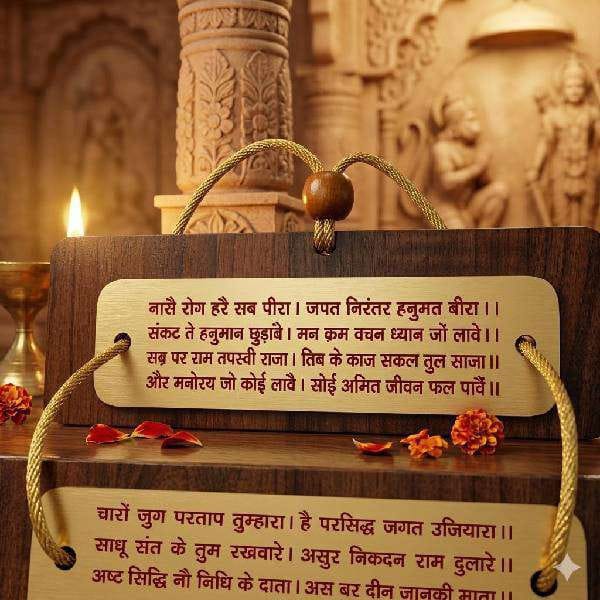 नासै रोग हरै सब पीरा। जपत निरंतर हनुमत बीरा।।
संकट ते हनुमान छुड़ांबै। मन क्रम वचन ध्यान जों लावे।।
सब्र पर राम तपस्वी राजा। तिब के काज सकल तुल साजा॥
और मनोरय जो कोई लावै। सोई अमित जीवन फल पार्वै॥
चारों जुग परताप तुम्हारा। है परसिद्ध जगत उजियारा।।
साधू संत के तुम रखवारे। असुर निकदन राम दुलारे।।
अष्ट सिद्धि नौ निधि के दाता। अस बर दीन जानकी माता।।